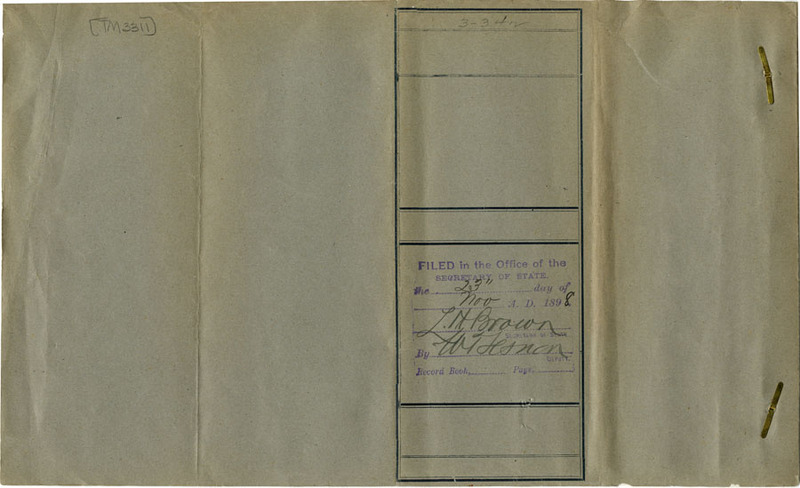 [TM3311]
3-342
FILED in the Office of the
SECRETARY OF STATE.
the 23" day of
Nov A. D. 1898
L. H. Brown
SECRETARY OF STATE
By
DEPUTY.
Record Book, Page,